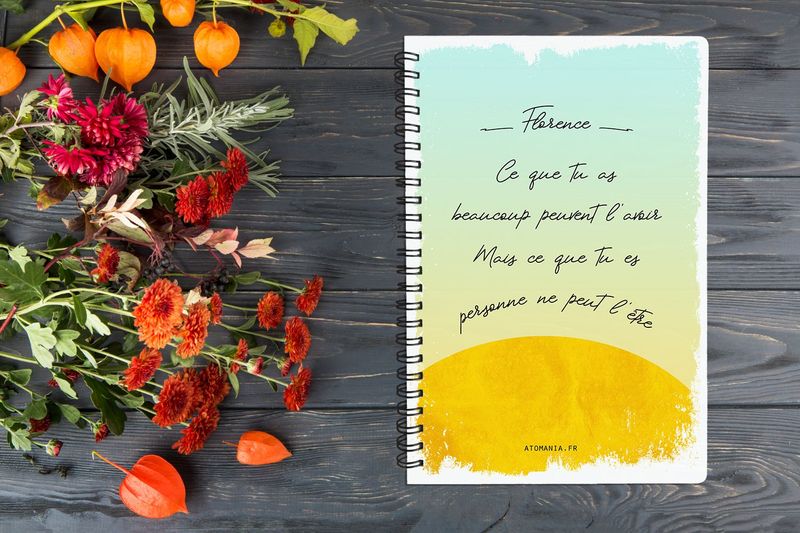 Florence
Ce que tu as
beaucoup peuvent l'avoir
Mais ce que tu es
personne ne peut l'être
ATOMANIA.FR